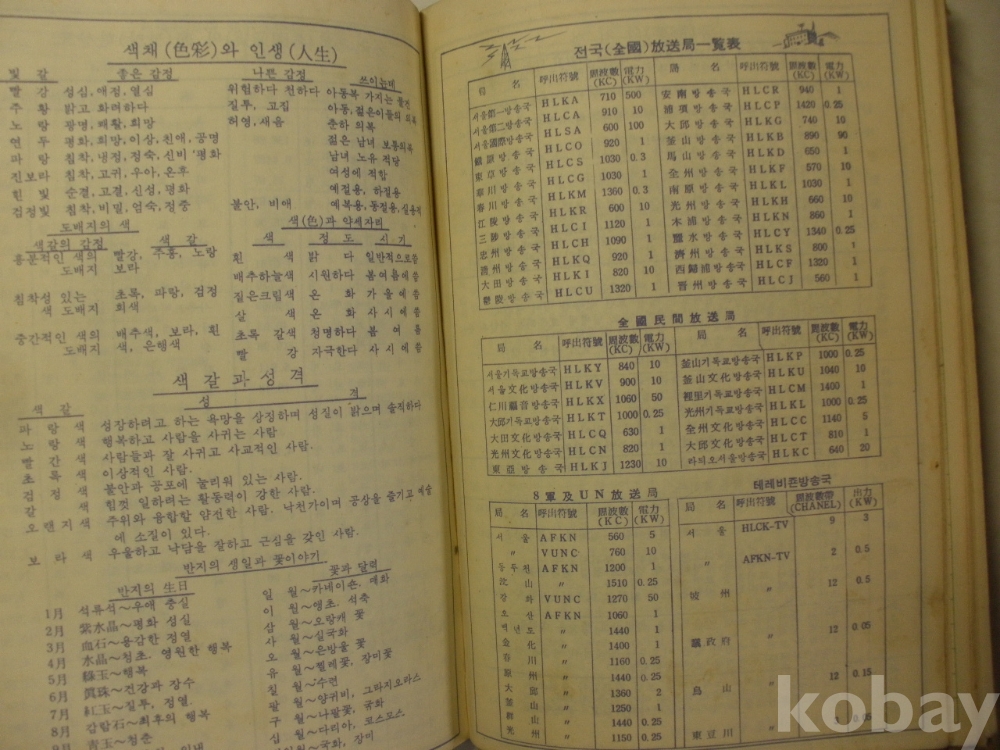 색채(色彩)와 인생(人生)
빛 갈 좋은감정 나쁜감정 쓰이는데
빨 강 성심,애정,열심 위험하다 천하다 아동복 가지는 물건
주 황 밝고 화려하다 질투, 고집 아동,젊은이들의 외복
노 랑 광명,쾌활,희망 허영,새음 춘하 의복
연 두 평화,희망,이상,친애,공명 젊은 남녀 보통의복
파 랑 침착,냉정,정숙,신비 평화 남녀 노유 적당
진보라 침착,고귀,우아,온후 여성에 적합
흰 빛 순결,고결,신성,평화 예절용, 하절용
검정빛 침착,비밀,엄숙,정중 불안, 비애 예복용,동절용,실용적
도배지의 색 색(色)과 약세자리
색갈의 감정 색 갈 색 정 도 시 기
흥분적인 색의 빨강, 주홍, 노랑 흰 색 밝 다 일반적으로씀
도배지 보라 배추하늘색 시원하다 봄여름에씀
침착성 있는 초록, 파랑, 검정 짙은크림색 온 화 가을에씀
색 도배지 회색 살 색 온 화 사시에씀
중간적인 색의 배추색, 보라, 흰 초록 갈색 청명하다 봄 여 름
도배지 색, 은행색 빨 강 자극한다 사시에씀
색 갈 과 성 격
색 갈 성 격
파 랑 색 성장하려고 하는 욕망을 상징하며 성실이 밝으며 솔직하다
노 랑 색 행복하고 사람을 사귀는 사람.
빨 간 색 사람들과 잘 사귀고 사교적인 사람.
초 록 색 이상적인 사람.
검 정 색 불안과 공포에 눌리워 있는 사람.
갈 색 힘껏 일하려는 활동력이 강한 사람.
오 랜 지 색 주위와 융합할 얌전한 사람. 낙천가이며 공상을 즐기고 예술
에 소질이 있다.
보 라 색 우울하고 낙담을 잘하고 근심을 갖인 사람.
반지의 생일과 꽃이야기
반지의 生日 꽃과 달력
1月 석류석～우애 충실 일 월～카네이숀, 매화
2月 紫水晶～평화 성실 이 월～앵초. 석죽
3月 血石～용감한 정열 삼 월～오랑캐 꽃
4月 水晶～청초. 영원한 행복 사 월～실국화
5月 綠玉～행복 오 월～은방울 꽃
6月 眞珠～건강과 장수 유 월～찔레꽃, 장미꽃
7月 紅玉～질투, 정열. 칠 월～수련
8月 감람石～최후의 행복 팔 월～양귀비, 그라지오라스
9月 靑玉～청춘 구 월～나팔꽃, 국화
십 월～다리아, 코스모스
국화, 장미
전국(全國)放送局一覽表
局 名 呼出符號 周波數(KC) 電力(KW) 局 名 呼出符號 周波數(KC) 電力(KW)
서울第一방송국 HLKA 710 500 安南방송국 HLCR 940 1
서울第二방송국 HLCA 910 10 浦項방송국 HLCP 1420 1
서울國際방송국 HLSA 600 100 大邱방송국 HLKG 740 10
HLCO 920 1 釜山방송국 HLKB 890 90
HLCS 1030 0.3 馬山방송국 HLKD 650 1
HLCG 1030 1 全州방송국 HLKF 570 10
春川방송국 HLKM 1360 0.3 南原방송국 HLKL 1030 1
江陵방송국 HLKR 600 10 光州방송국 HLKH 660 10
三陟방송국 HLCI 1120 1 木浦방송국 HLKN 860 1
忠州방송국 HLCH 1090 1 麗水방송국 HLCY 1340 0.25
淸州방송국 HLKQ 920 1 濟州방송국 HLKS 800 1
大田방송국 HLKI 820 10 西歸浦방송국 HLCF 1320 1
鬱陵방송국 HLCU 1320 1 晋州방송국 HLCJ 560 1
全國民間放送局
局 名 呼出符號 周波數(KC) 電力(KW) 局 名 呼出符號 周波數(KC) 電力(KW)
서울기독교방송국 HLKY 840 10 釜山기독교방송국 HLKP 1000 0.25
서울文化방송국 HLKV 900 10 釜山文化방송국 HLKU 1040 10
仁川福音방송국 HLKX 1060 50 裡里기독교방송국 HLCM 1400 1
大邱기독교방송국 HLKT 1000 0.25 光州기독교방송국 HLKL 1000 0.25
大田文化방송국 HLCQ 630 1 全州文化방송국 HLCC 1140 5
光州文化방송국 HLCN 820 1 大邱文化방송국 HLCT 810 1
東亞방송국 HLKJ 1230 10 라디오서울방송국 HLKC 640 20
8軍及UN放送局
局 名 呼出符號 周波數(KC) 電力(KW)
서 울 AFKN 560 5
〃 VUNC 760 10
동두천 AFKN 1200 1
汶 山 〃 1510 0.25
강 화 VUNC 1270 50
오 산 AFKN 1060 1
백년도 〃 1440 1
金 化 〃 1400 1
春 川 〃 1160 0.25
原 州 〃 1440 0.25
大 邱 〃 1360 2
釜 山 〃 1250 1
群 山 〃 1440 0.25
光 州 〃 1150 0.25
테레비죤방송국
局 名 呼出符號 周波數帶(CHANEL) 出力(KW)
서 울 HLCK-TV 9 3
〃 AFKN-TV 2 0.5
坡 州 〃 12 0.5
議政府 〃 12 0.05
烏 山 〃 12 0.15
東豆川
kobay